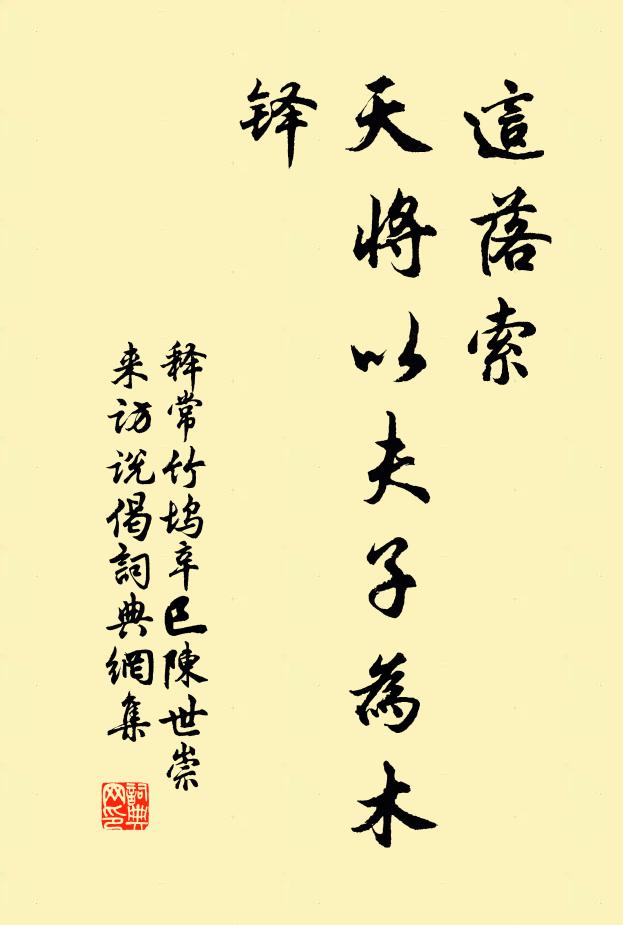 這落索
天將以夫子為木
铎
释常竹坞辛巳陳世崇
来访说偈詞典網集
詞典
网印